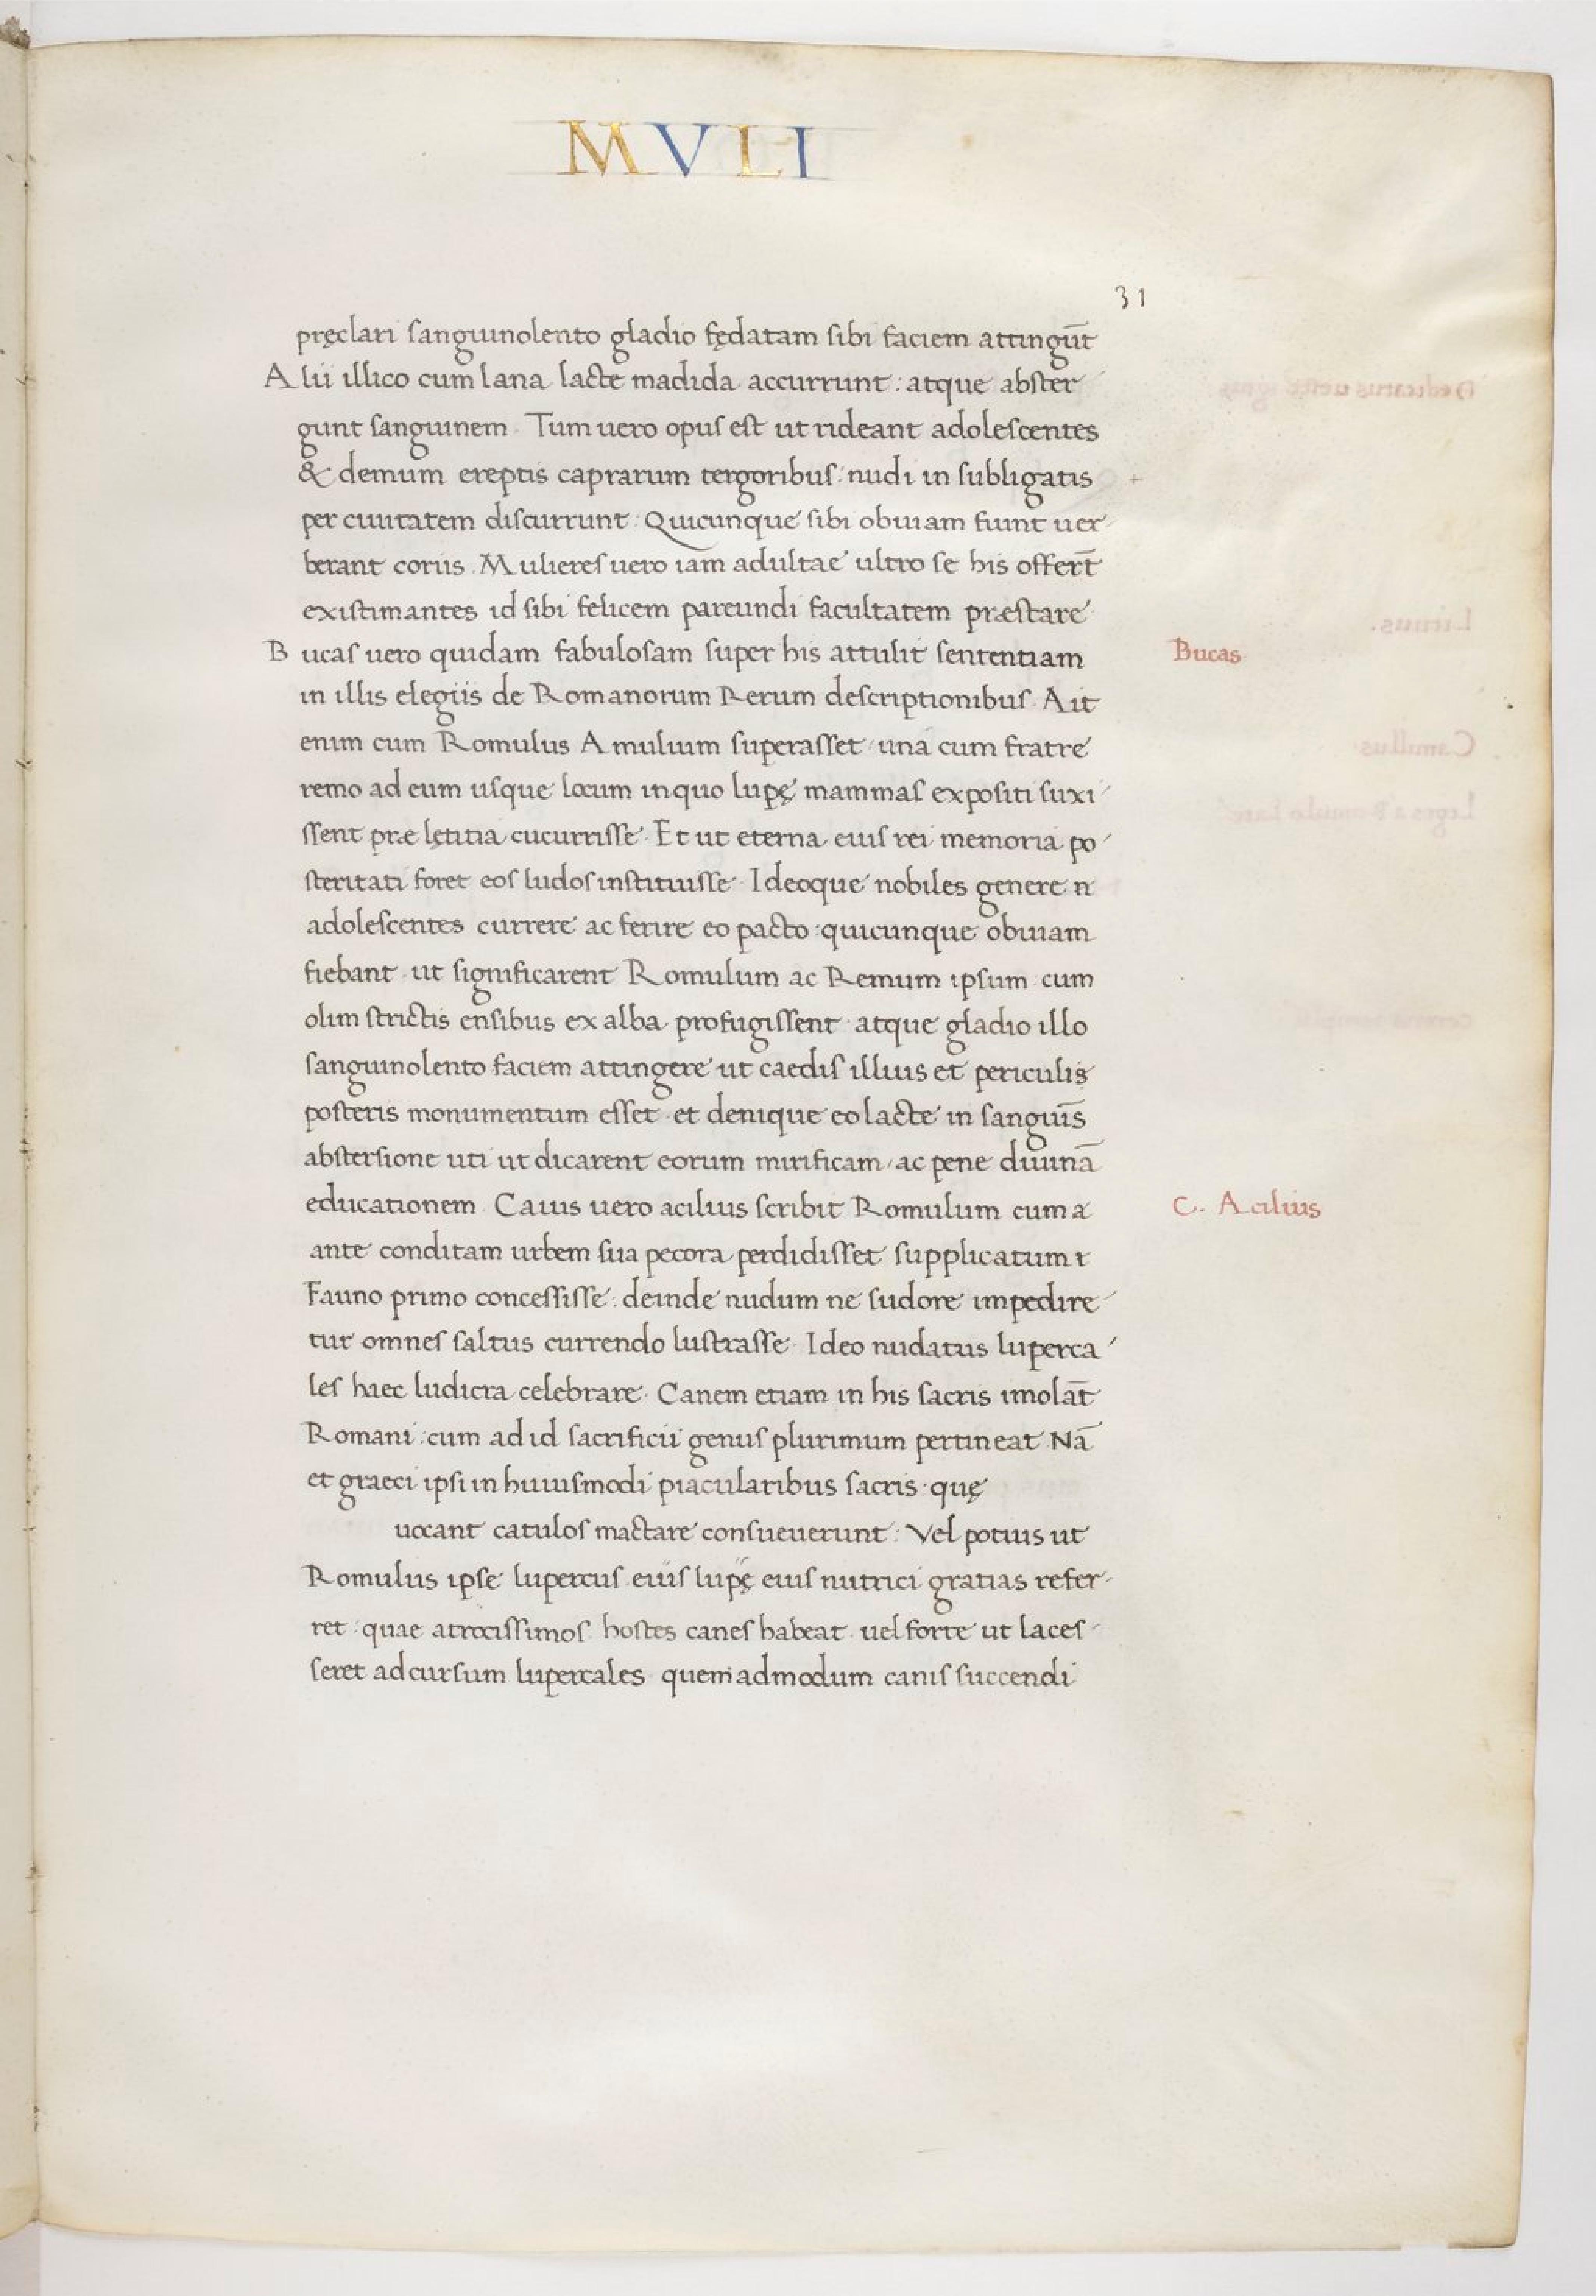 MVLI
31
pręclari sanguinolento gladio fędatam sibi faciem attingūt
Alii illico cum lana lacte madida accurrunt: atque abster
gunt sanguinem. Tum uero opus est ut rideant adolescentes
& demum ereptis caprarum tergoribus: nudi in subligatis
per ciuitatem discurrunt: Quicunque sibi obuiam fiunt uer
berant coriis. Mulieres uero iam adultae ultro se his offert̄
existimantes id sibi felicem pareundi facultatem præstare
Bucas uero quidam fabulosam super his attulit sententiam
Bucas
in illis elegiis de Romanorum Rerum descriptionibus. Ait
enim cum Romulus Amulium superasset una cum fratre
remo ad eum usque locum in quo lupę mammas expositi suxi
ssent præ lętitia cucurrisse. Et ut eterna eius rei memoria po
steritati foret eos ludos instituisse. Ideoque nobiles genere
adolescentes currere ac ferire eo pacto: quicunque obuiam
fiebant ut significarent Romulum ac Remum ipsum cum
olim strictis ensibus ex alba profugissent atque gladio illo
sanguinolento faciem attingere ut caedis illius et periculis
posteris monumentum esset et denique eo lacte in sanguīs
abstersione uti ut dicarent eorum mirificam, ac pene diuinā
educationem. Caius uero acilius scribit Romulum cum a
C. Acilius
ante conditam urbem sua pecora perdidisset supplicatum
Fauno primo concessisse: deinde nudum ne sudore impedire
tur omnes saltus currendo lustrasse. Ideo nudatus luperca
les haec ludicra celebrare. Canem etiam in his sacris imolāt
Romani: cum ad id sacrificii genus plurimum pertineat. Nā
et graeci ipsi in huiusmodi piacularibus sacris. quę
uocant catulos mactare consueuerunt: Vel potius ut
Romulus ipse lupercus eius lupę eius nutrici gratias refer
ret: quae atrocissimos hostes canes habeat. uel forte ut laces
seret ad cursum lupercales quemadmodum canis succendi